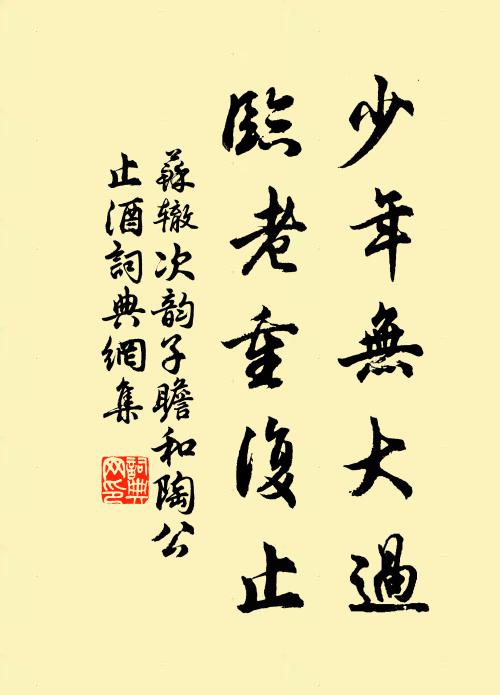 少年無大過
臨老重復止
蘇辙次韵子瞻和陶公
止酒詞典網集
詞典网印